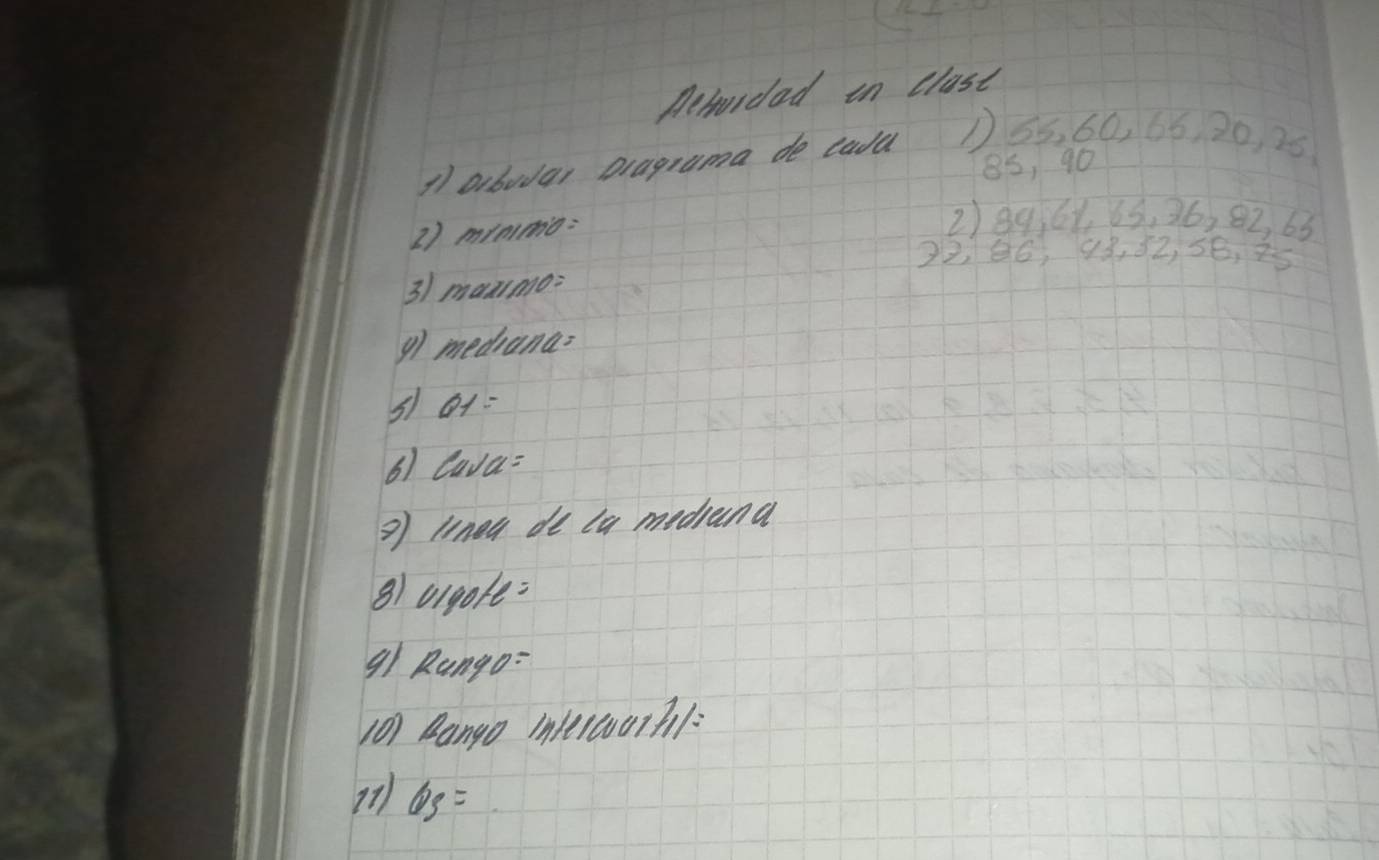 Actividad en clase
1) Dibujar Diagrama de caja
2) minimo=
3) maximo=
4) mediana=
5) Q1=
6) Caja=
7) linea de la mediana
8) vigote=
9) Rango=
10) Rango intercuartil=
11) Q3=
1) 55, 60, 65, 70, 75,
85, 90
2) 84, 61, 65, 76, 82, 65
77, 86, 43, 52, 58, 75